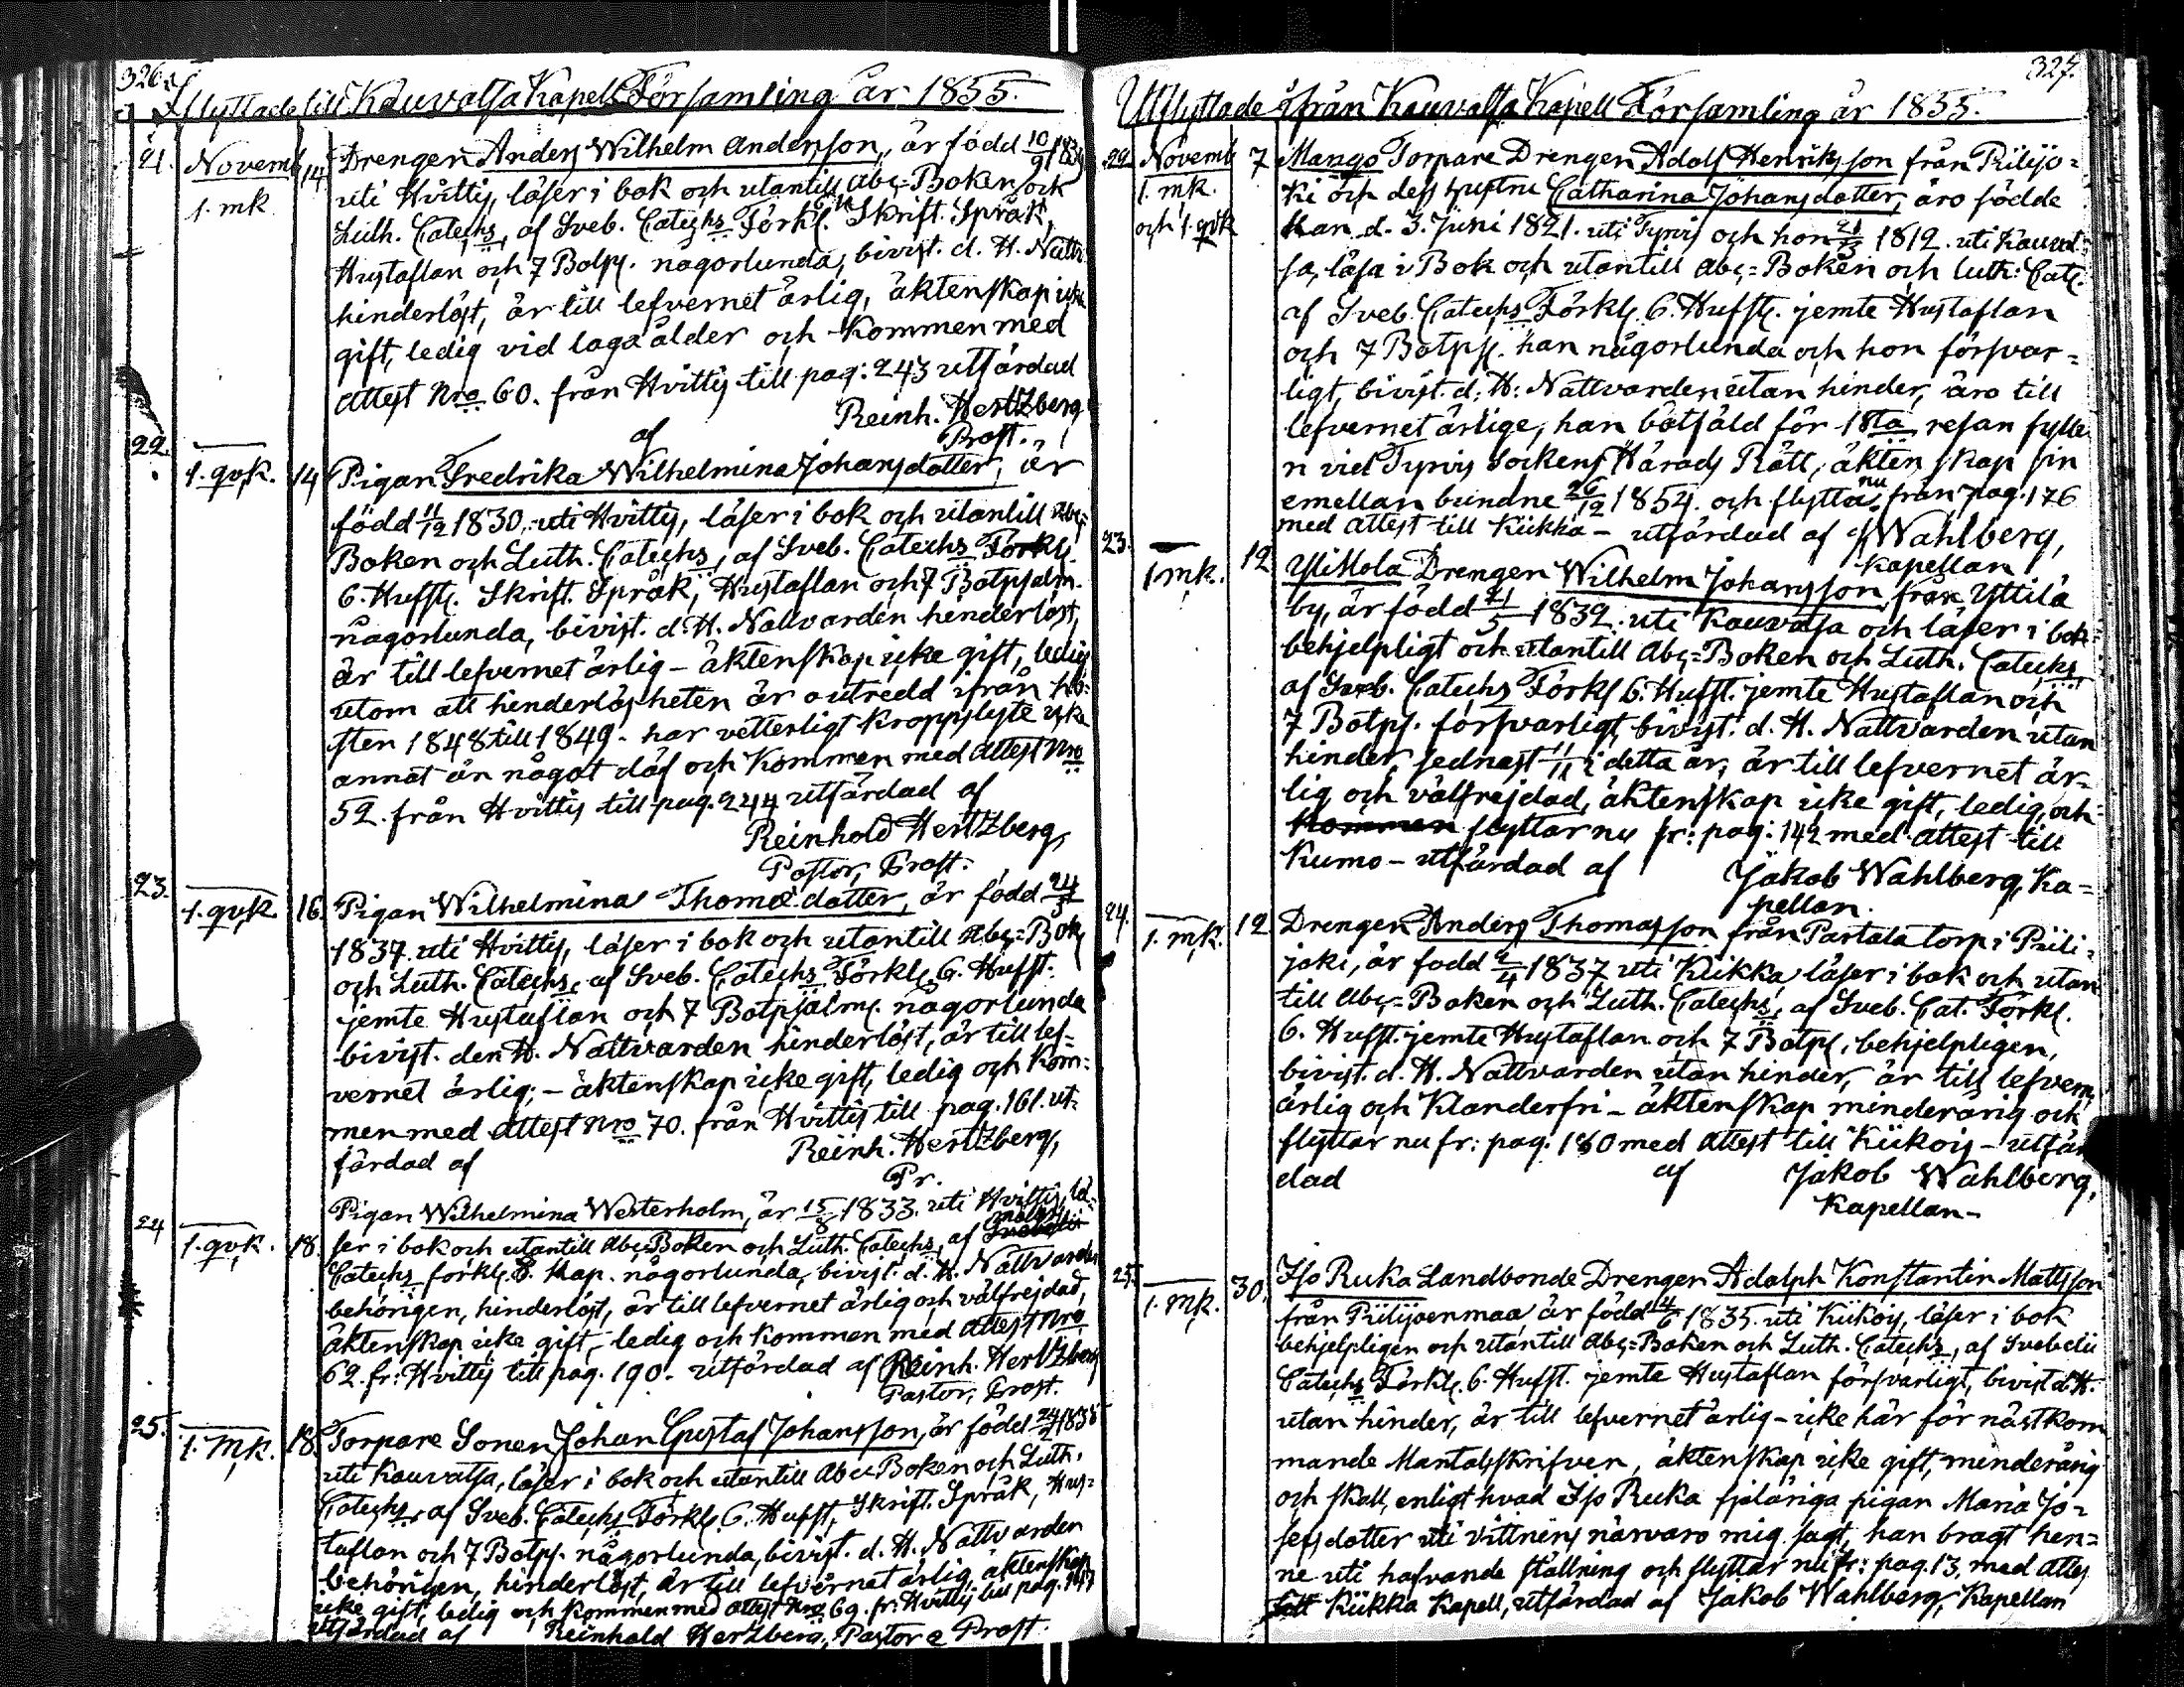 326.
Inflyttade till Kauvatsa Kapell Församling år 1855.
21. Novemb. 14 Drengen Anders Wilhelm Andersson, är född 10/9
1. mk uti Hvittis, läser i bok och utantill Abc=Boken och
Luth. Catechs, af Sveb. Catechs Förkl. Skrift. Språk,
Hustaflan och 7 Botps. någorlunda, bivist. d. H. Nattv.
hinderlöst, är till lefvernet ärlig, äktenskap icke
gift, ledig vid laga ålder och Kommen med
Attest Nro 60. från Hvittis till pag: 243 utfärdad
af Reinh. Hertzberg
Prost.
22. 1. qvk. 14 Pigan Fredrika Wilhelmina Johansdotter, är
född 11/12 1830. uti Hvittis, läser i bok och utantill Abc=
Boken och Luth. Catechs, af Sveb. Catechs Förkl.
6. Hufst. Skrift. Språk, Hustaflan och 7 Botpsalm.
någorlunda, bivist. d. H. Nattvarden hinderlöst,
är till lefvernet ärlig – äktenskap icke gift, ledig
utom att hinderlösheten är outredd ifrån hö=
sten 1848 till 1849. har vetterligt kroppslyte icke
annat än något döf och Kommen med Attest Nro
52. från Hvittis till pag. 244 utfärdad af
Reinhold Hertzberg,
Pastor, Prost.
23. 1. qvk. 16. Pigan Wilhelmina Thomædotter, är född 24/3
1837. uti Hvittis, läser i bok och utantill Abc=Bok
och Luth. Catechs, af Sveb. Catechs Förkl. 6. Hufst.
jemte Hustaflan och 7 Botpsalm. någorlunda
bivist. den H. Nattvarden hinderlöst, är till lef=
vernet ärlig; – äktenskap icke gift, ledig och Kom=
men med Attest Nro 70. från Hvittis till pag. 161. ut=
färdad af Reinh. Hertzberg,
Pr.
24 1. qvk. 18. Pigan Wilhelmina Westerholm, är 15/8 1833. uti Hvittis, lä=
ser i bok och utantill Abc Boken och Luth. Catechs, af
Catechs förkl. 8. Kap. någorlunda, bivist. d. H. Nattvarden
behörigen, hinderlöst, är till lefvernet ärlig och välfrejdad,
äktenskap icke gift, ledig och kommen med Attest Nro
62. fr: Hvittis till pag. 190. utfärdad af Reinh. Hertzberg
Pastor, Prost.
25. 1. mk. 18. Torpare Sonen Johan Gustaf Johansson, är född
uti Kauvatsa, läser i bok och utantill Abc Boken och Luth.
Catechs, af Sveb. Catechs Förkl. 6. Hufst, Skrift. Språk, Hus=
taflan och 7 Botps. någorlunda, bivist. d. H. Nattvarden
behörigen, hinderlöst, är till lefvernet ärlig, äktenskap
icke gift, ledig och Kommen med Attest Nro 69. fr: Hvittis till pag.
utfärdad af Reinhold Hertzberg, Pastor & Prost.
327.
Utflyttade ifrån Kauvatsa Kapell Församling år 1855.
22. Novemb 7 Mango Torpare Drengen Adolf Henriksson från Piilijo=
1. mk. ki och dess hustru Catharina Johansdotter, äro födde
och 1. qvk han d. 3. Juni 1821. uti Tyrvis och hon 1812. uti Kauvat=
sa, läsa i Bok och utantill Abc=Boken och Luth: Cate.
af Sveb. Catechs Förkl. 6. Hufst. jemte Hustaflan
och 7 Botps. han någorlunda och hon försvar=
ligt, bivist. d. H: Nattvarden utan hinder, äro till
lefvernet ärlige, han bötfäld för 1sta resan fylle
n vid Tyrvis Sockens Härads Rätt, äktenskap sin
emellan bundne 26/12 1854. och flytta nu från pag. 176
med Attest till Kiikka – utfärdad af J Wahlberg,
Kapellan
23. 1. mk. 12 Ylitlola Drengen Wilhelm Johansson från Yttilä
by, är född 21/5 1832. uti Kauvatsa och läser i bok
behjelpligt och utantill Abc=Boken och Luth. Catechs,
af Sveb. Catechs Förkl 6. Hufst. jemte Hustaflan och
7 Botps. försvarligt, bivist. d. H. Nattvarden utan
hinder, sednast 11/11 i detta år, är till lefvernet är=
lig och välfrejdad, äktenskap icke gift, ledig, och
Kommen flyttar nu fr: pag: 142 med Attest till
Kumo – utfärdad af Jakob Wahlberg, Ka=
pellan.
24. 1. mk. 12 Drengen Anders Thomasson från Partala torp i Piili=
joki, är född 2/4 1837 uti Kiikka läser i bok och utan
till Abc=Boken och Luth. Catechs, af Sveb. Cat. Förkl.
6. Hufst. jemte Hustaflan och 7 Botps. behjelpligen,
bivist. d. H. Nattvarden utan hinder, är till lefvern
ärlig och Klanderfri – äktenskap minderårig och
flyttar nu fr: pag. 180 med Attest till Kiikois – utfär
dad af Jakob Wahlberg,
Kapellan –
25. 1. mk. 30. Iso Ruka Landbonde Drengen Adolph Konstantin Mattsson
från Piilijoenmaa är född 1835. uti Kiikois, läser i bok
behjelpligen och utantill Abc=Boken och Luth. Catechs, af Svebelii
Catechs Förkl. 6. Hufst. jemte Hustaflan försvarligt, bivist d. H.
utan hinder, är till lefvernet ärlig – icke här för nästkom
mande Mantalsskrifven, äktenskap icke gift, minderårig
och skall, enligt hvad Iso Ruka fjolåriga pigan Maria Jo=
sefsdotter uti vittnens närvaro mig sagt, han bragt hen=
ne uti hafvande ställning och flyttar nu fr: pag. 13, med Attes
till Kiikka Kapell, utfärdad af Jakob Wahlberg, Kapellan